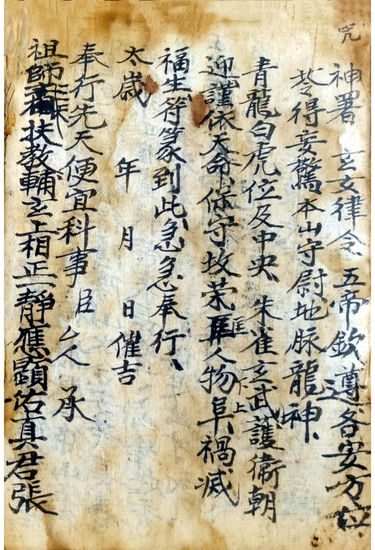 咒
神署 玄 律令 五帝欽遵各安方位
得妄驚本山守尉地脉龍神
青龍白虎位及中央 朱雀玄武護衛朝
迎謹依天命保守坟荣 人物阜禍滅
福生符篆到此急急奉行
太歲 年 月 日催吉
奉行先天便宜科事臣 承
祖師 扶教輔玄上相正一靜應顯佑真君張